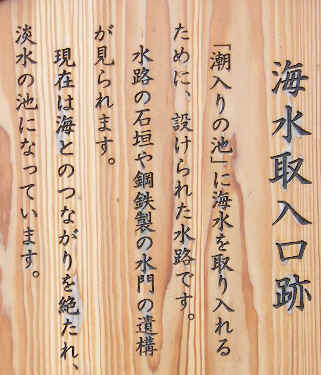 海水取入口跡
「潮入りの池」に海水を取り入れる
ために、設けられた水路です。
水路の石垣や鋼鉄製の水門の遺構
が見られます。
現在は海とのつながりを絶たれ、
淡水の池になっています。